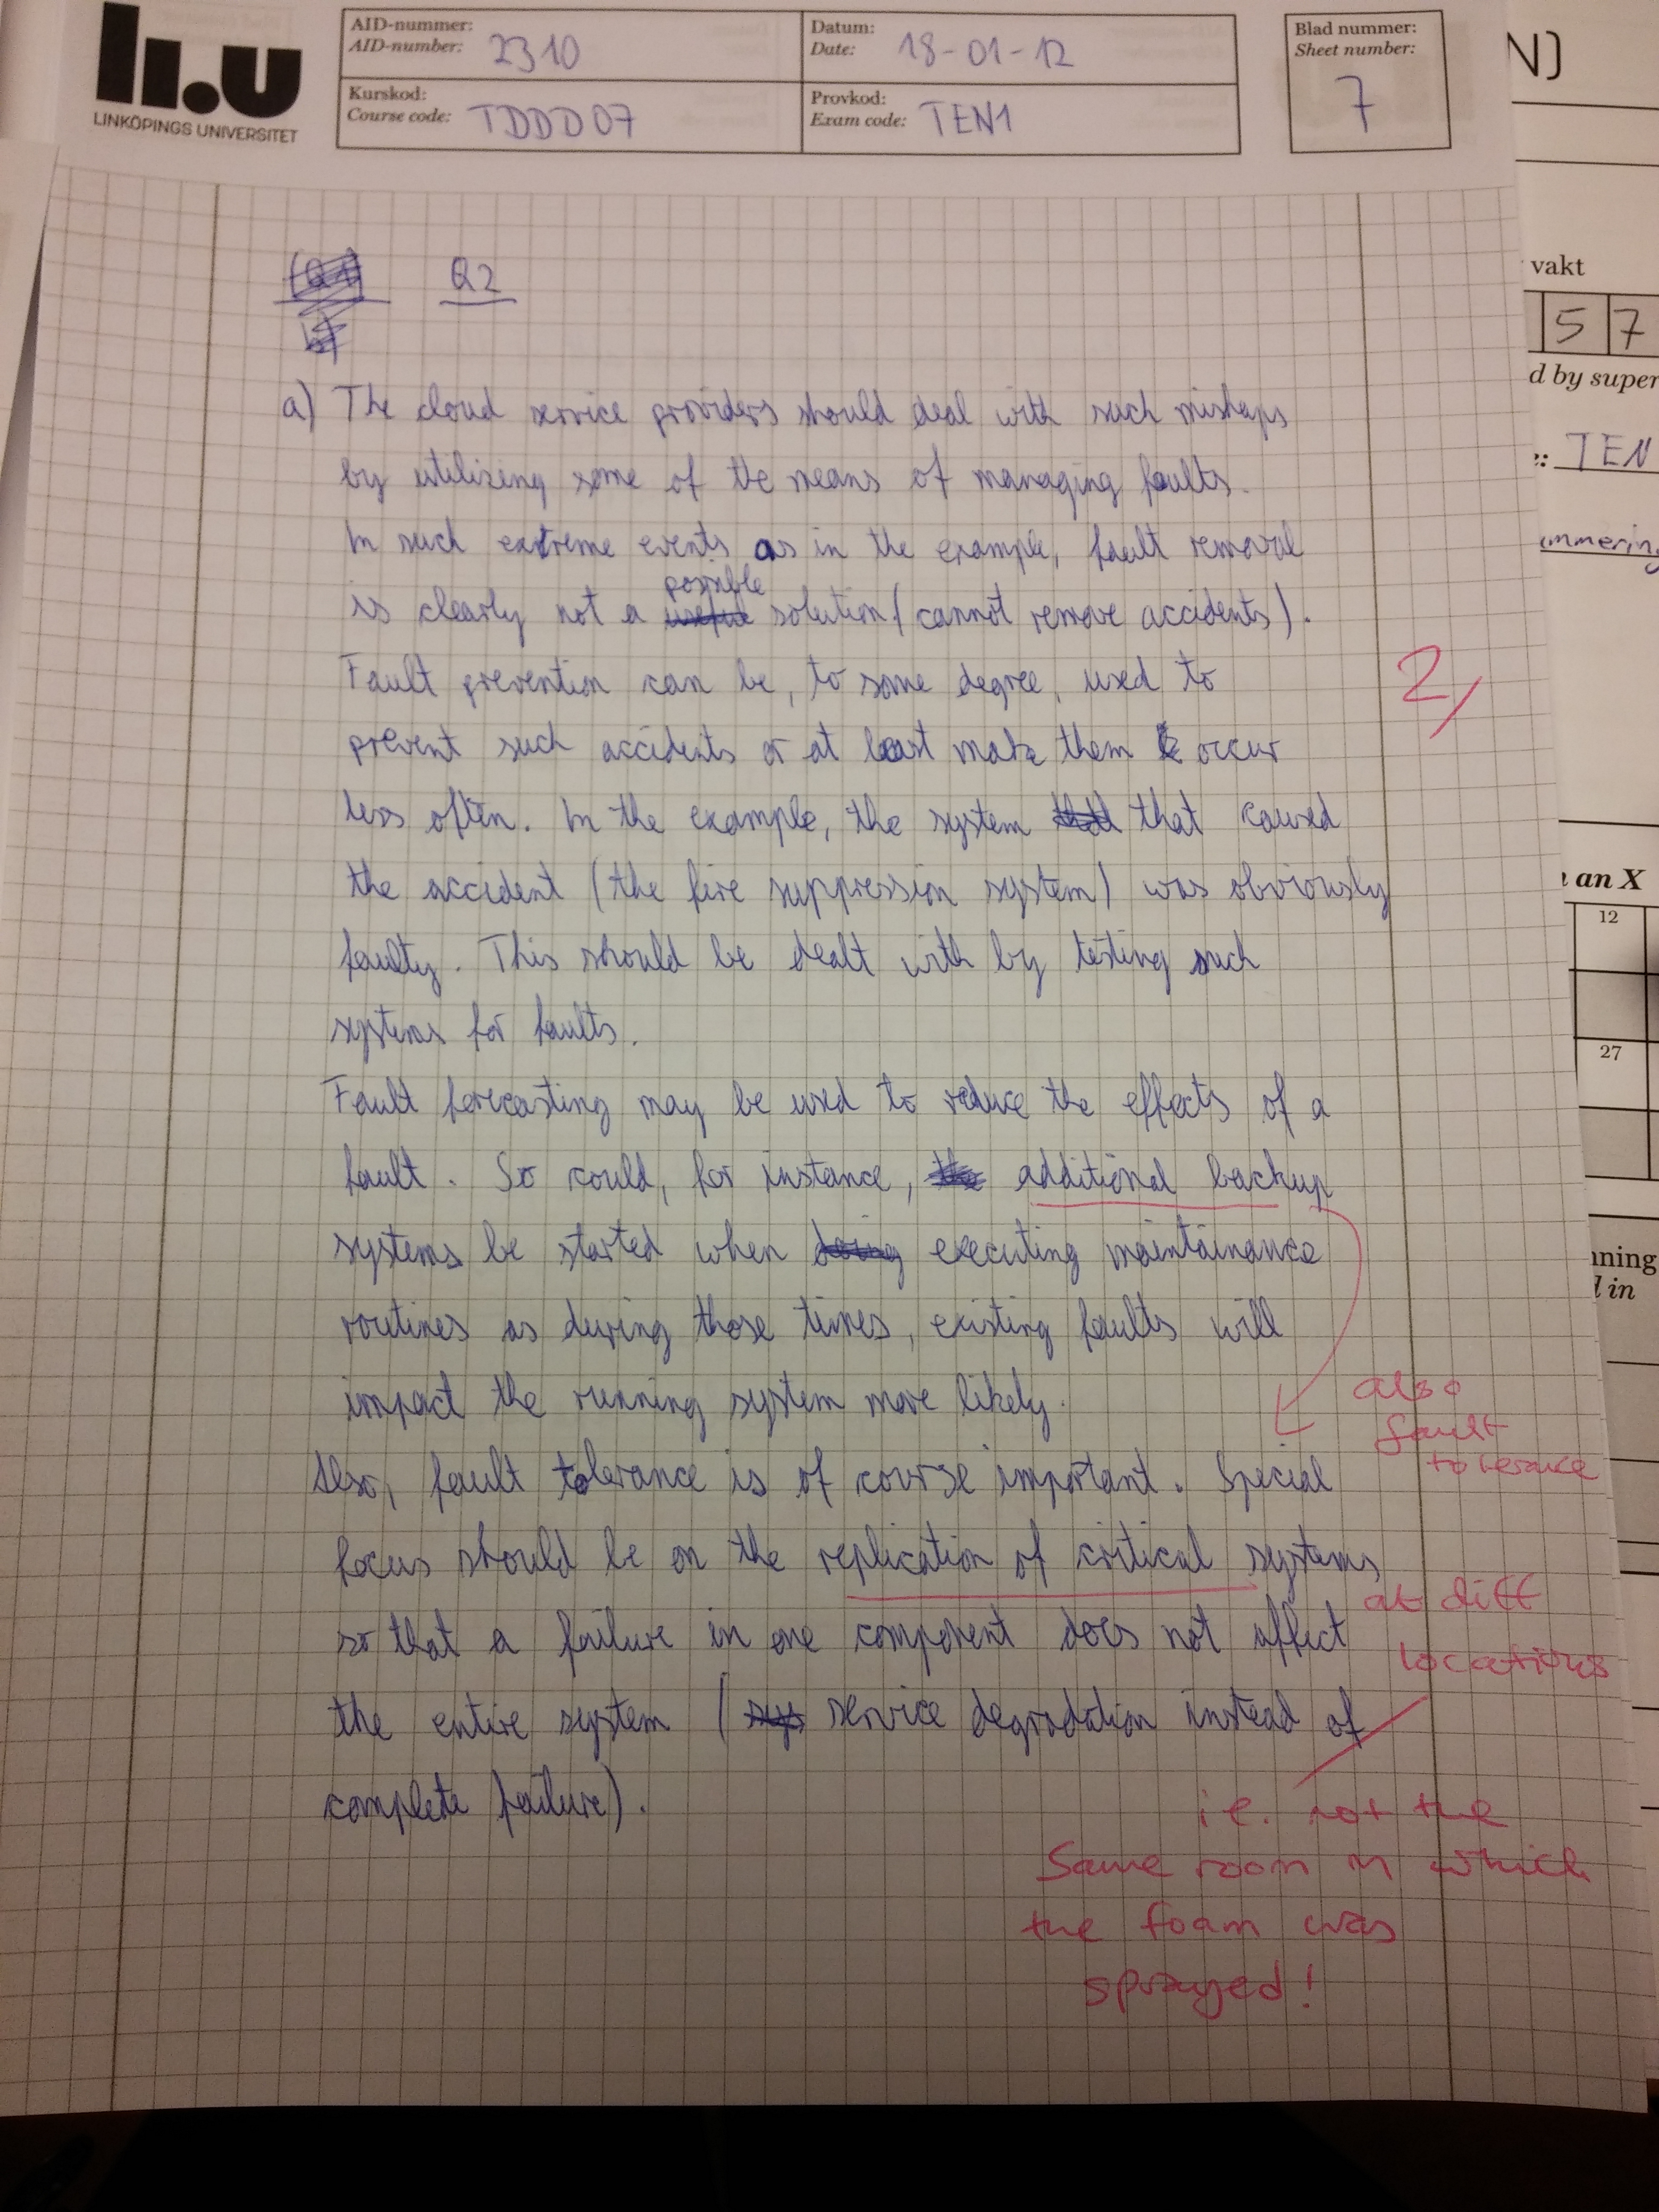 li.u
LINKÖPINGS UNIVERSITET
AID-nummer:
AID-number: 2310
Datum:
Date: 18-01-12
Blad nummer:
Sheet number:
7
Kurskod:
Course code: TDDD07
Provkod:
Exam code: TEN1
N)
vakt
5 7
d by super
: TEN
mmering
an X
12
27
ning
in
Q2
a) The cloud service providers should deal with such mishaps
by utilizing some of the means of managing faults.
In such extreme events as in the example, fault removal
possible
is clearly not a useful solution (cannot remove accidents).
Fault prevention can be, to some degree, used to
2/
prevent such accidents or at least make them occur
less often. In the example, the system that caused
the accident (the fire suppression system) was obviously
faulty. This should be dealt with by testing such
systems for faults.
Fault forecasting may be used to reduce the effects of a
fault. So could, for instance, the additional backup
systems be started when doing executing maintainance
routines as during those times, existing faults will
impact the running system more likely.
also
fault
tolerance
Also, fault tolerance is of course important. Special
focus should be on the replication of critical systems
at diff
locations
so that a failure in one component does not affect
the entire system (sys service degradation instead of
complete failure).
i.e. not the
same room in which
the foam was
sprayed!